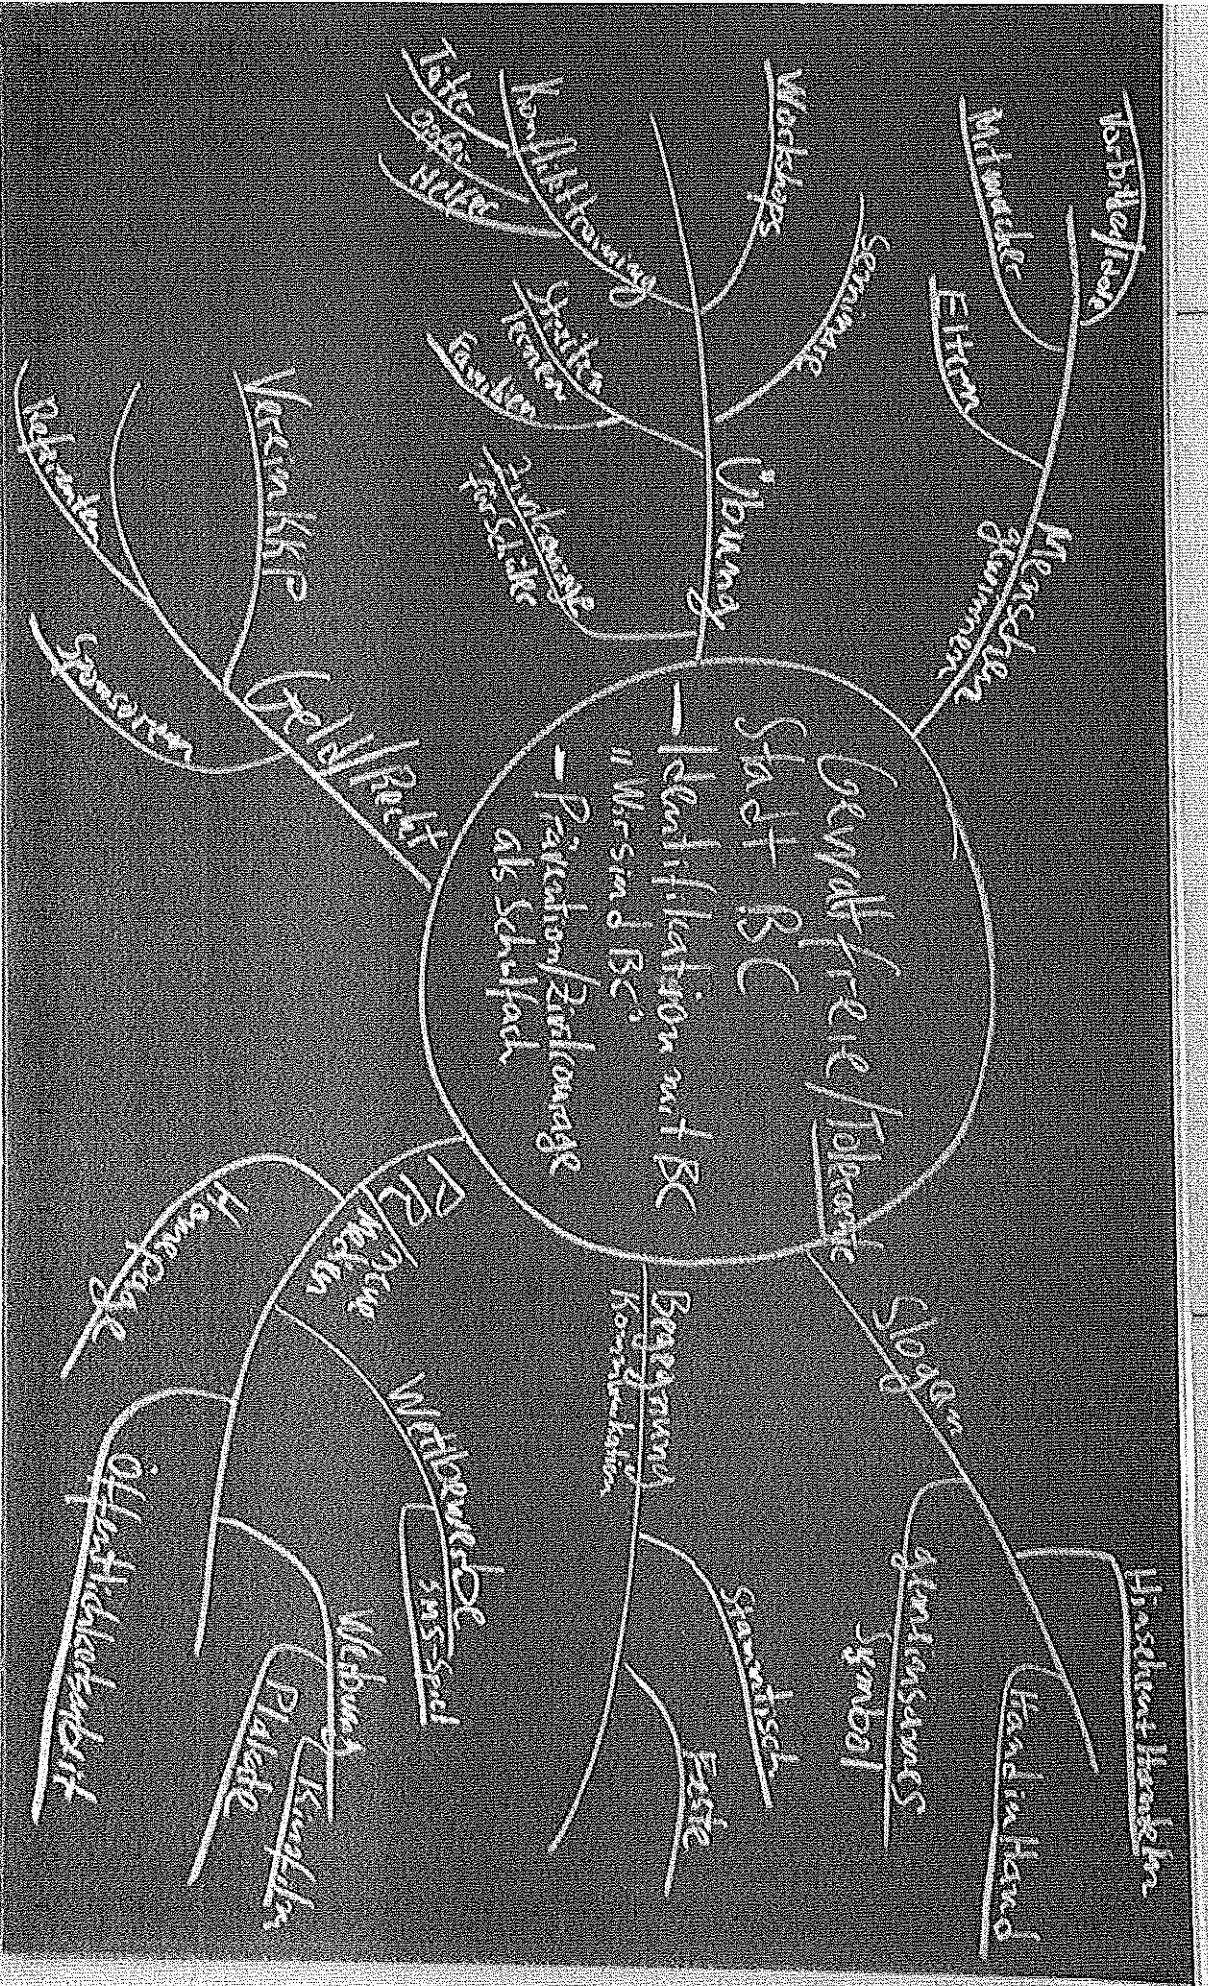 Gewaltfreie/Tolerante
Stadt BC
- Identifikation mit BC
"Wir sind BC"
- Prävention/Zivilcourage
als Schulfach
Menschen
gewinnen
Eltern
Mitmacher
Vorbilder
Übung
Seminare
Workshops
Konflikttraining
Täter
Opfer
Helfer
Streiten
lernen
Familien
Zivilcourage
für Schüler
Geld/Recht
Verein KKP
Referenten
Sponsoren
Slogan
Hinsehen + Handeln
Hand in Hand
gemeinsames
Symbol
Begegnung
Kommunikation
Stammtisch
Feste
PR/Neue
Medien
Wettbewerbe
SMS-Spiel
Werbung
Kinofilm
Plakate
Öffentlichkeitsarbeit
Homepage